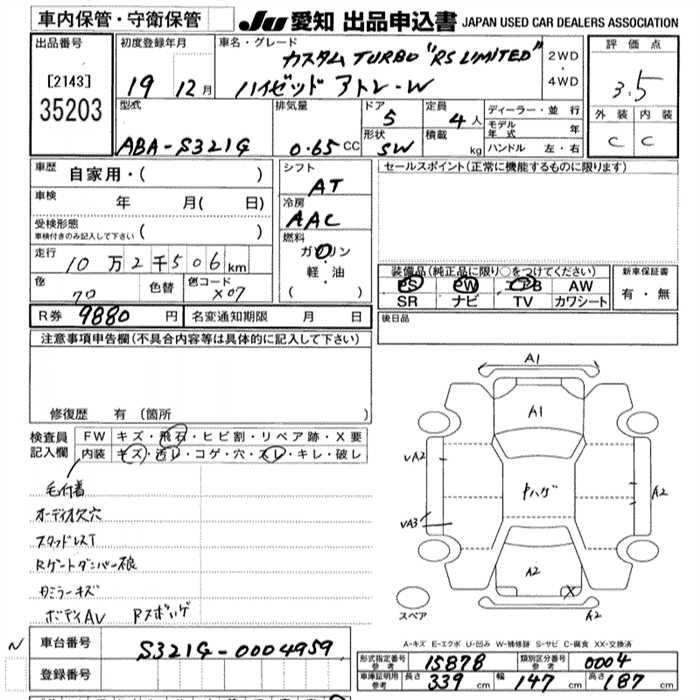 車内保管・守衛保管
JU 愛知 出品申込書 JAPAN USED CAR DEALERS ASSOCIATION
出品番号
[2143]
35203
初度登録年月
19年 12月
車名・グレード
カスタム TURBO "RS LIMITED"
ハイゼッド アトレーW
2WD
・
4WD
評価点
3.5
外装 内装
C C
型式
ABA-S321G
排気量
0.65 CC
ドア
5
形状
SW
定員
4人
積載
kg
ディーラー・並行
モデル年式 年
ハンドル 左・右
車歴
自家用・( )
車検
年 月( 日)
受検形態
車検付きのみ記入して下さい ( )
走行
10万2千506km
色 色替 色コード
X07
シフト
AT
冷房
AAC
燃料
ガソリン
軽・油
( )
セールスポイント(正常に機能するものに限ります)
装備品(純正品に限り○をつけてください)
PS PW エアB AW
SR ナビ TV カワシート
新車保証書
有・無
R券 9880円 名変通知期限 月 日
後日品
注意事項申告欄(不具合内容等は具体的に記入して下さい)
修復歴 有 (箇所
検査員
記入欄
FW キズ・飛石・ヒビ割・リペア跡・X要
内装 キズ・汚レ・コゲ・穴・スレ・キレ・破レ
毛付着
オーディオ欠穴
スタッドレスT
Rゲートダンパー痕
Dミラーキズ
ボディAV
A1
A1
VA2
VA3
A2
A2
X
A2
スペア
A-キズ E-エクボ U-凹み W-補修跡 S-サビ C-腐食 XX-交換済
N
車台番号 S321G-0004959
登録番号
形式指定番号
参考
15878
類別区分番号
参考
0004
車庫証明用
参考
長さ 339cm 幅 147cm 高さ 187cm